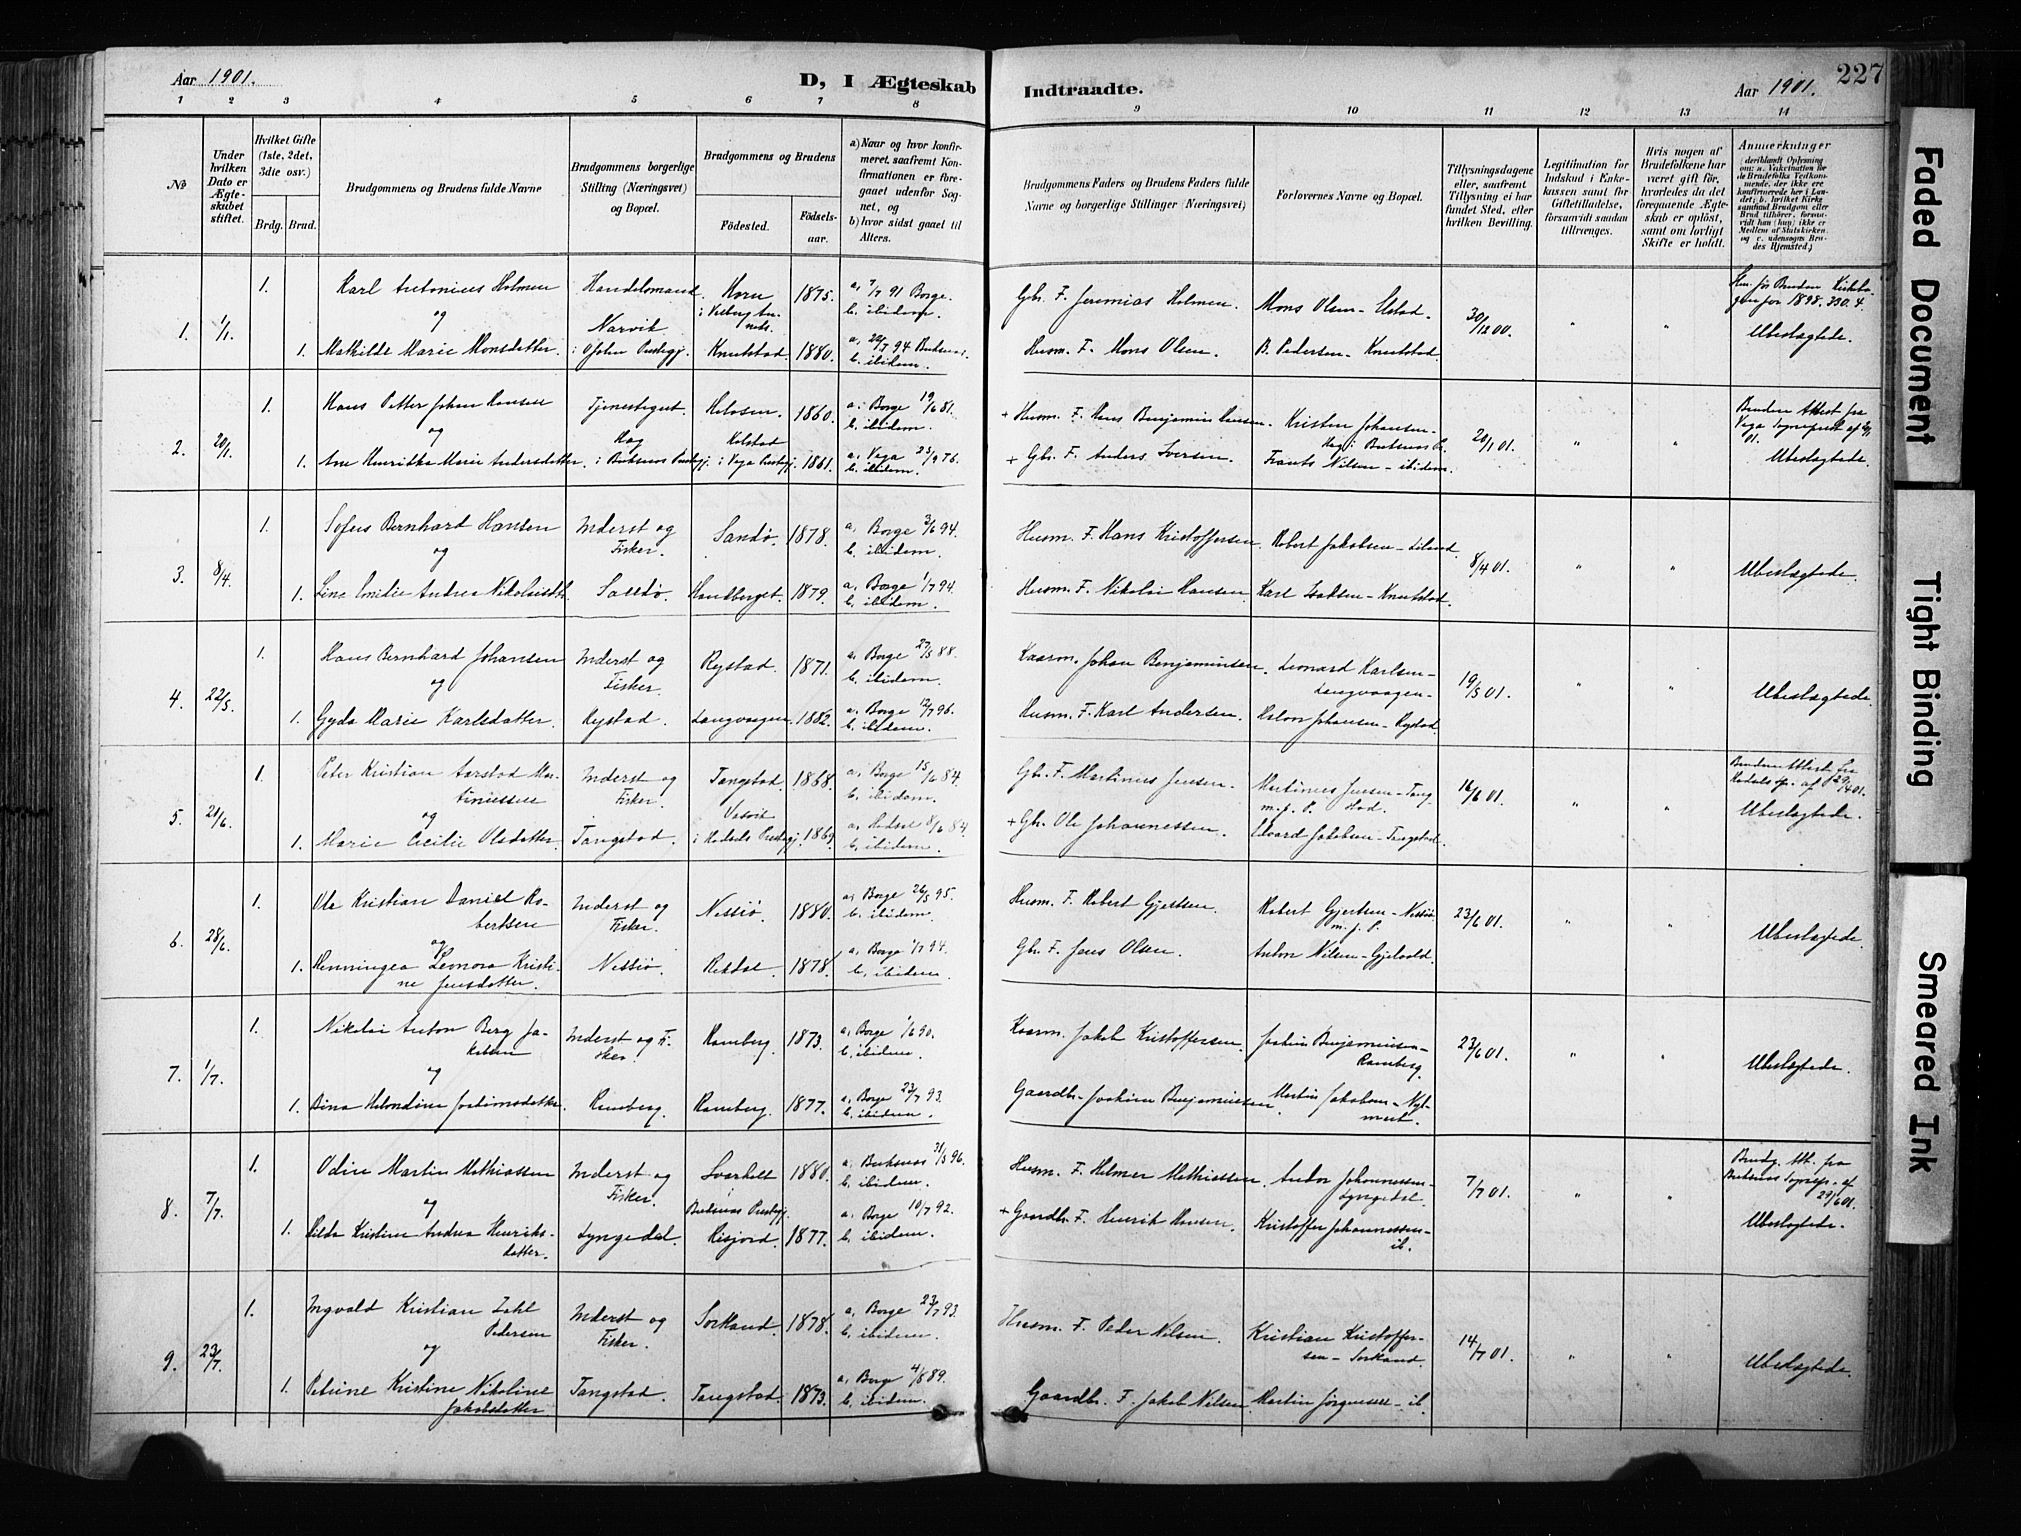 Aar 1901.
D, I Ægteskab Indtraadte.
Aar 1901.
227
1 2 3 4 5 6 7 8 9 10 11 12 13 14
No
Under hvilken Dato er Ægteskabet stiftet.
Hvilket Gifte (1ste, 2det, 3die osv.)
Brdg. Brud.
Brudgommens og Brudens fulde Navne
Brudgommens borgerlige Stilling (Næringsvei) og Bopæl.
Brudgommens og Brudens
Födested.
Födselsaar.
a) Naar og hvor konfirmeret, saafremt Konfirmationen er foregaaet udenfor Sognet, og
b) hvor sidst gaaet til Alters.
Brudgommens Faders og Brudens Faders fulde Navne og borgerlige Stillinger (Næringsvei)
Forlovernes Navne og Bopæl.
Tillysningsdagene eller, saafremt Tillysning ei har fundet Sted, efter hvilken Bevilling.
Legitimation for Indskud i Enkekassen samt for Giftetilladelse, forsaavidt saadan tiltrænges.
Hvis nogen af Brudefolkene har været gift før, hvorledes da det foregaaende Ægteskab er oplöst, samt om lovligt Skifte er holdt.
Anmerkninger
1. 1/1.
1. Karl Antonius Holmen Handelsmand Horn 1875. a, 7/7 91 Borge. b. ibidem.
og
1. Mathilde Marie Monsdatter. Narvik i Ofoten Prestegj. Knutstad 1880. 94 Buksnes. b. ibidem.
Gbr. F. Jeremias Holmen. Mons Olsen - Ustad. 30/12 00.
Husm. F. Mons Olsen. B. Pedersen - Knutstad. Ubeslægtede.
2. 20/1.
1. Hans Petter Johan Hansen Tjenestegut. 1860. a. Borge 19/6 81. b. ibidem.
og
1. Ane Henrikka Marie Andersdatter. Hag i Buksnes Prestegj. Kolstad i Vega Prestegj. 1861. a. Vega 23/9 76. b. ibidem.
+ Husm. F. Hans Benjamin Hansen. Kristen Johansen - Hag i Buksnes P. 20/1 01.
+ Gbr. F. Anders Iversen. Frants Nilsen - ibidem. Brudens Attest fra Vega Sogneprest af 01. Ubeslægtede.
3. 8/4.
1. Sofus Bernhard Hansen Inderst og Fisker. Sandø. 1878. a. Borge 3/6 94. b. ibidem.
og
1. Line Emilie Andrea Nikolaisdtr. Sandø. Handberget. 1879. a. Borge 1/7 94. b. ibidem.
Husm. F. Hans Kristoffersen. Robert Jakobsen - Liland. 8/4 01.
Husm. F. Nikolai Hansen. Karl Isaksen - Knutstad. Ubeslægtede.
4. 22/5.
1. Hans Bernhard Johansen Inderst og Fisker. Rystad. 1871. a. Borge 27/5 88. b. ibidem.
og
1. Gyda Marie Karlsdatter. Rystad. Langvaagen. 1882. a. Borge 12/7 96. b. ibidem.
Kaarm. Johan Benjaminsen. Leonard Karlsen - Langvaagen - 19/5 01.
Husm. F. Karl Andersen. Johansen - Rystad. Ubeslægtede.
5. 21/6.
1. Peter Kristian Aarstad Martinussen Inderst og Fisker. Tangstad. 1868. a. Borge 15/6 84. b. ibidem.
og
1. Marie Cecilie Olsdatter. Tangstad. i Hadsels Prestegj. 1869. a. Hadsel 8/6 84. b. ibidem.
Gbr. F. Martinus Jensen. Martinus Jensen - Tangstad. m. f. P. 16/6 01.
+ Gbr. Ole Johannessen. Edvard Jakobsen - Tangstad. Brudens Attest fra Hadsels Spr. af 29/4 01. Ubeslægtede.
6. 28/6.
1. Ole Kristian Daniel Robertsen Inderst og Fisker. Nessiø. 1880. a. Borge 26/5 95. b. ibidem.
og
1. Henningea Lenora Kristine Jensdatter. Nessiø. 1878. a. Borge 1/7 94. b. ibidem.
Husm. F. Robert Gjertsen. Robert Gjertsen - Nessiø m. f. P. 23/6 01.
Gbr. F. Jens Olsen. Anton Nilsen - Gjelvold. Ubeslægtede.
7. 1/7.
1. Nikolai Anton Berg Jakobsen Inderst og Fisker. Ramberg. 1873. a. Borge 1/6 90. b. ibidem.
og
1. Bina Helondine Joakimsdatter. Ramberg. Ramberg. 1877. a. Borge 23/7 93. b. ibidem.
Kaarm. Jakob Kristoffersen. Joakim Benjaminsen - Ramberg. 23/6 01.
Gaardbr. Joakim Benjaminsen. Martin Jakobsen - Ubeslægtede.
8. 7/7.
1. Odin Martin Mathiassen Inderst og Fisker. Svarholt Buksnes Prestegj. 1880. a. Buksnes 31/5 96. b. ibidem.
og
1. Hilda Kristine Andrea Henriksdatter. Lyngedal. Risjord. 1877. a. Borge 10/7 92. b. ibidem.
Husm. F. Helmer Mathiassen. Andor Johannessen - Lyngedal. 7/7 01.
+ Gaardbr. F. Henrik Hansen. Kristoffer Johannessen - ib. Brudg. Att. fra Buksnes Sognepr. af 29/6 01. Ubeslægtede.
9. 23/7.
1. Ingvald Kristian Zahl Pedersen Inderst og Fisker. Sorkand. 1878. a. Borge 23/7 93. b. ibidem.
og
1. Petrine Kristine Nikoline Jakobsdatter Tangstad. Tangstad. 1873. a. Borge 4/8 89. b. ibidem.
Husm. F. Peder Nilsen. Kristian Kristoffersen - Sorkand. 14/7 01.
Gaardbr. F. Jakob Nilsen. Martin Jørgensen - ib. Ubeslægtede.
Faded Document
Tight Binding
Smeared Ink